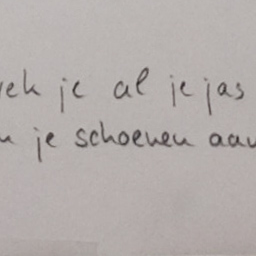 je al je jas
je schoenen aan